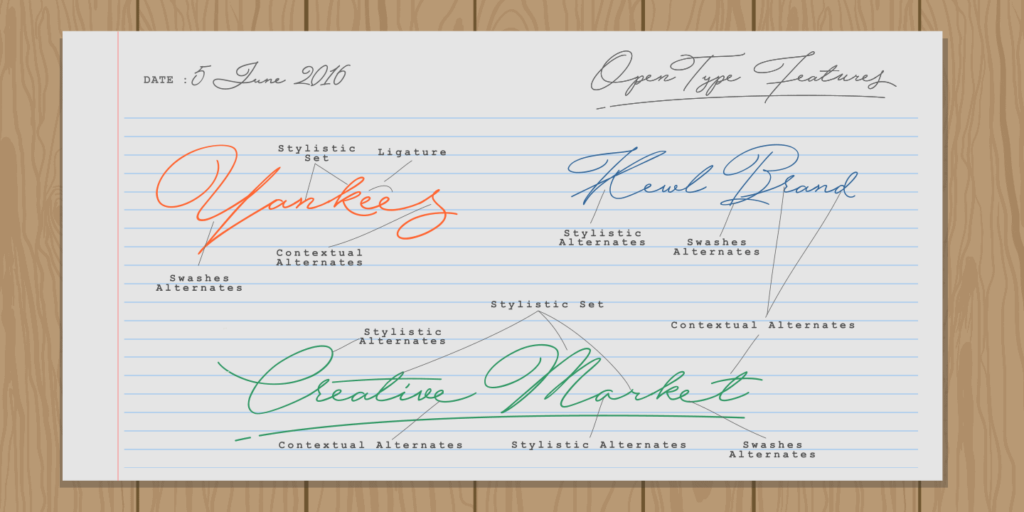 DATE : 5 June 2016
OpenType Features
Stylistic
Set
Ligature
Yankees
Contextual
Alternates
Swashes
Alternates
Hewl Brand
Stylistic
Alternates
Swashes
Alternates
Stylistic Set
Contextual Alternates
Stylistic
Alternates
Creative Market
Contextual Alternates
Stylistic Alternates
Swashes
Alternates